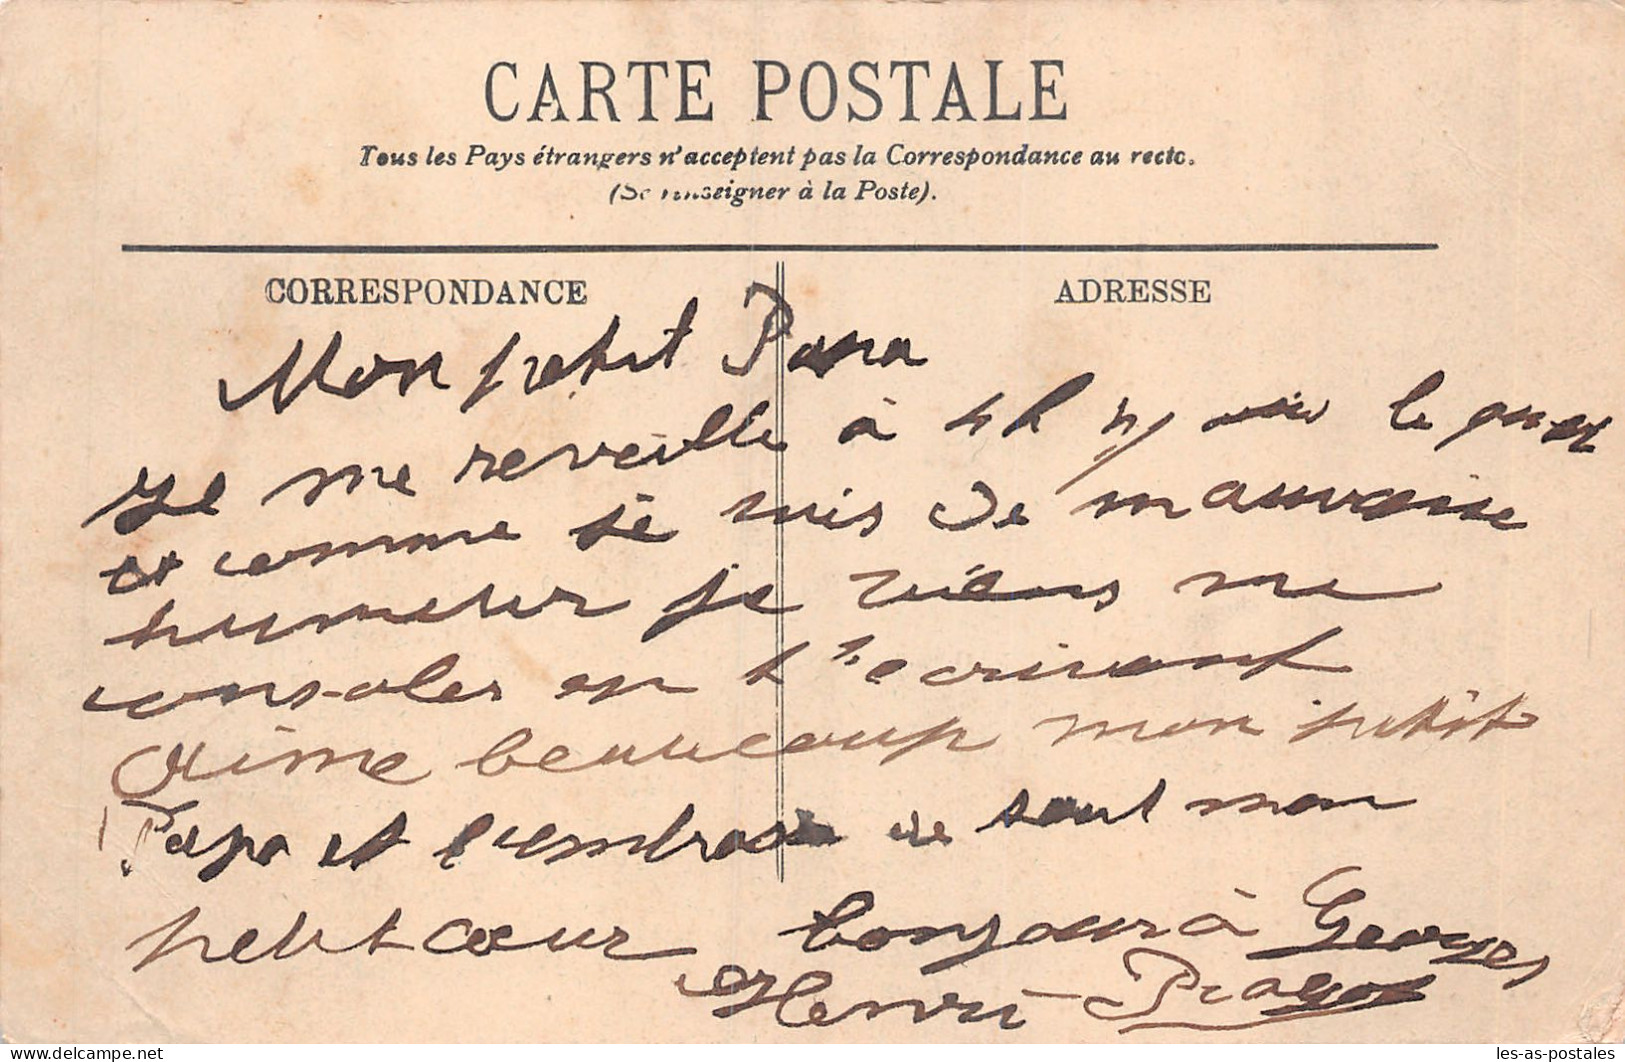 CARTE POSTALE
Tous les Pays étrangers n'acceptent pas la Correspondance au recto.
(Se renseigner à la Poste).
CORRESPONDANCE
ADRESSE
Mon petit Papa
Je me reveille à 4 h le
et comme je suis de mauvaise
humeur je viens me
consoler en t'ecrivant
Aime beaucoup mon petit
Papa et l'embrasse de tout mon
petit cœur bonjour à Georges
Henri
les-as-postales